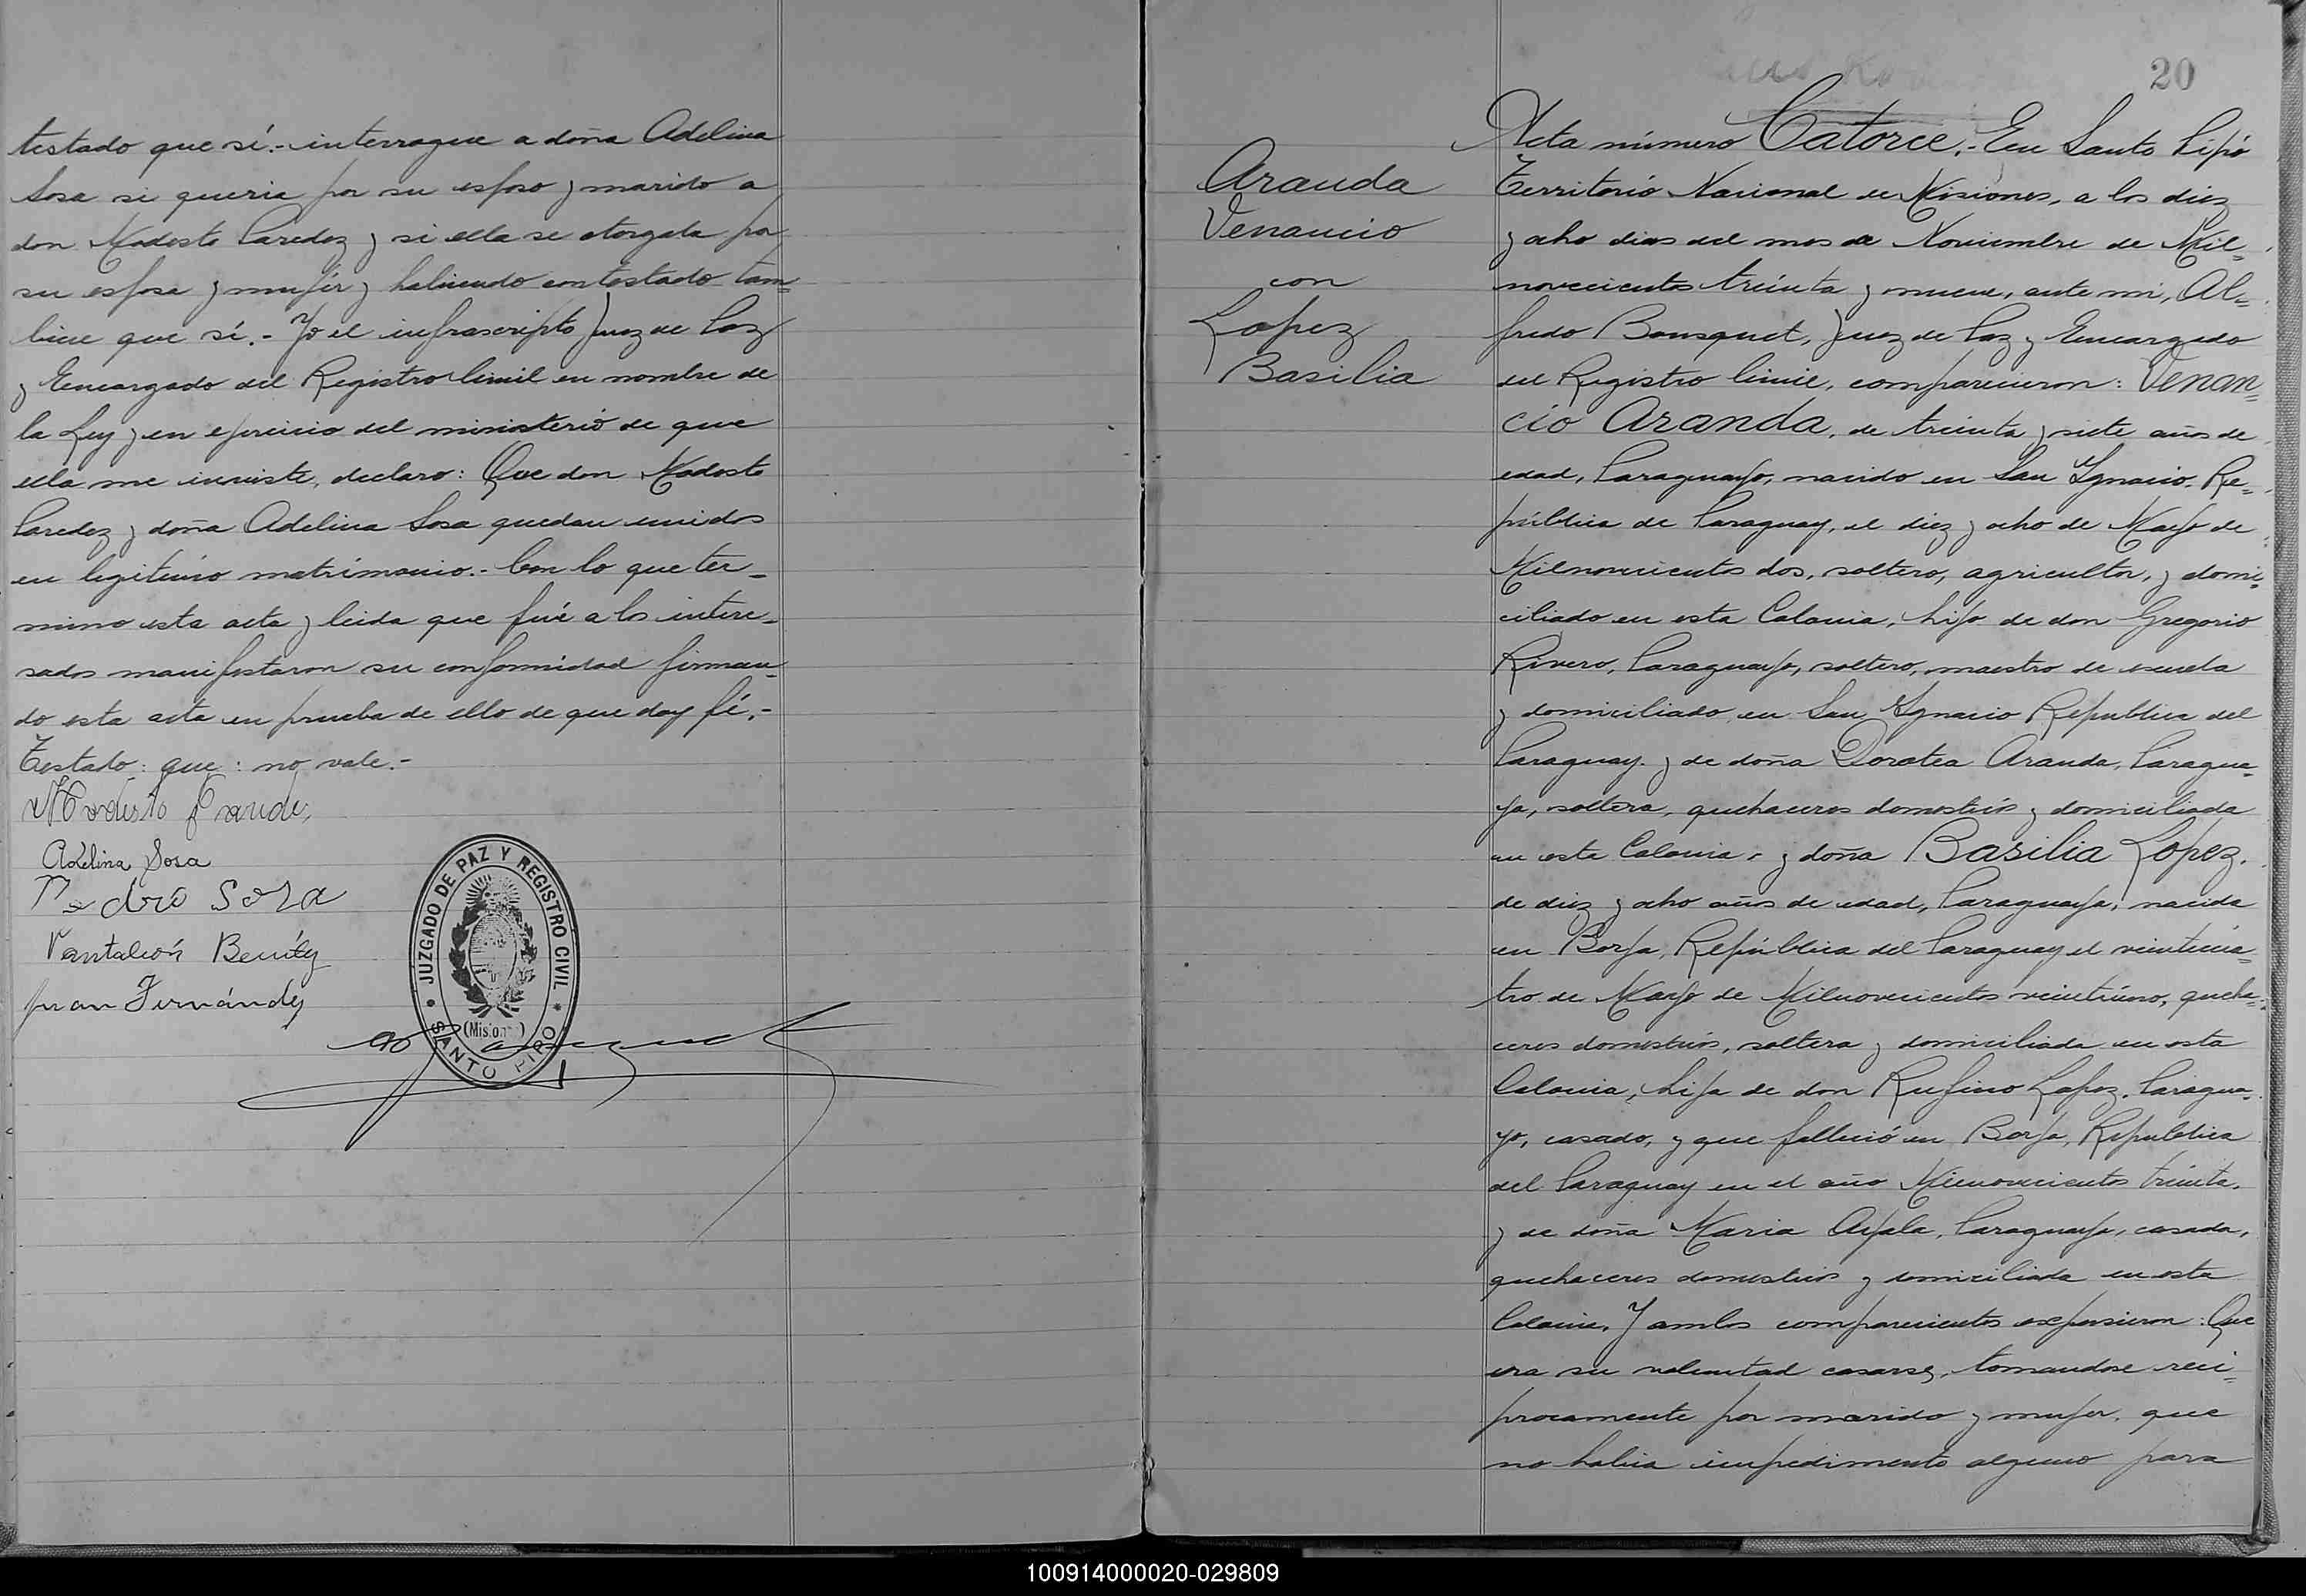 testado que sí.- interrogue a doña Adelina
Sosa si queria por su esposo y marido a
don Modesto Paredez y si ella se otorgata por
su esposa y mujér y habiendo contestado tam=
bien que sí.- Yo el infrascripto Juez de Paz
y Encargado del Registro Civil en nombre de
la Ley y en ejercicio del ministerio de que
ella me inviste, declaro: Que don Modesto
Paredez y doña Adelina Sosa quedan unidos
en legitimo matrimonio.- Con lo que ter-
mino esta acta y leida que fué a los intere-
sados manifestaron su conformidad firman-
do esta acta en prueba de ello de que doy fé.-
Testado: que: no vale.-
Modesto
Adelina Sosa
Pedro Sosa
Pantaleón Benítez
Juan Fernández
JUZGADO DE PAZ Y REGISTRO CIVIL
(Misiones)
SANTO PIPO
20
Aranda
Venancio
con
Lopez
Basilia
Acta número Catorce.- En Santo Pipó
Territorio Nacional de Misiones, a los diez
y ocho dias del mes de Noviembre de Mil=
novecientos treinta y nueve, ante mi, Al=
fredo Bousquet, Juez de Paz y Encargado
del Registro Civil, comparecieron: Venan=
cio Aranda, de treinta y siete años de
edad, Paraguayo, nacido en San Ygnacio. Re=
pública de Paraguay, el diez y ocho de Mayo de
Milnovecientos dos, soltero, agricultor, y domi=
ciliado en esta Colonia, hijo de don Gregorio
Rivero, Paraguayo, soltero, maestro de escuela
y domiciliado en San Ygnacio Republica del
Paraguay. y de doña Dorotea Aranda, Paragua=
ya, soltera, quehaceres domesticos y domiciliada
en esta Colonia.- y doña Basilia Lopez.
de diez y ocho años de edad, Paraguaya, nacida
en Borja, República del Paraguay el veinticua=
tro de Mayo de Milnovecientos veintiuno, queha=
ceres domesticos, soltera y domiciliada en esta
Colonia, hija de don Rufino Lopez. Paragua=
yo, casado, y que falleció en Borja, Republica
del Paraguay en el año Milnovecientos treinta.
y de doña Maria Ayala, Paraguaya, casada,
quehaceres domesticos y domiciliada en esta
Colonia. Y ambos comparecientes expusieron: Que
era su voluntad casarse, tomandose reci=
procamente por marido y mujer, que
no habia impedimento alguno para
100914000020-029809